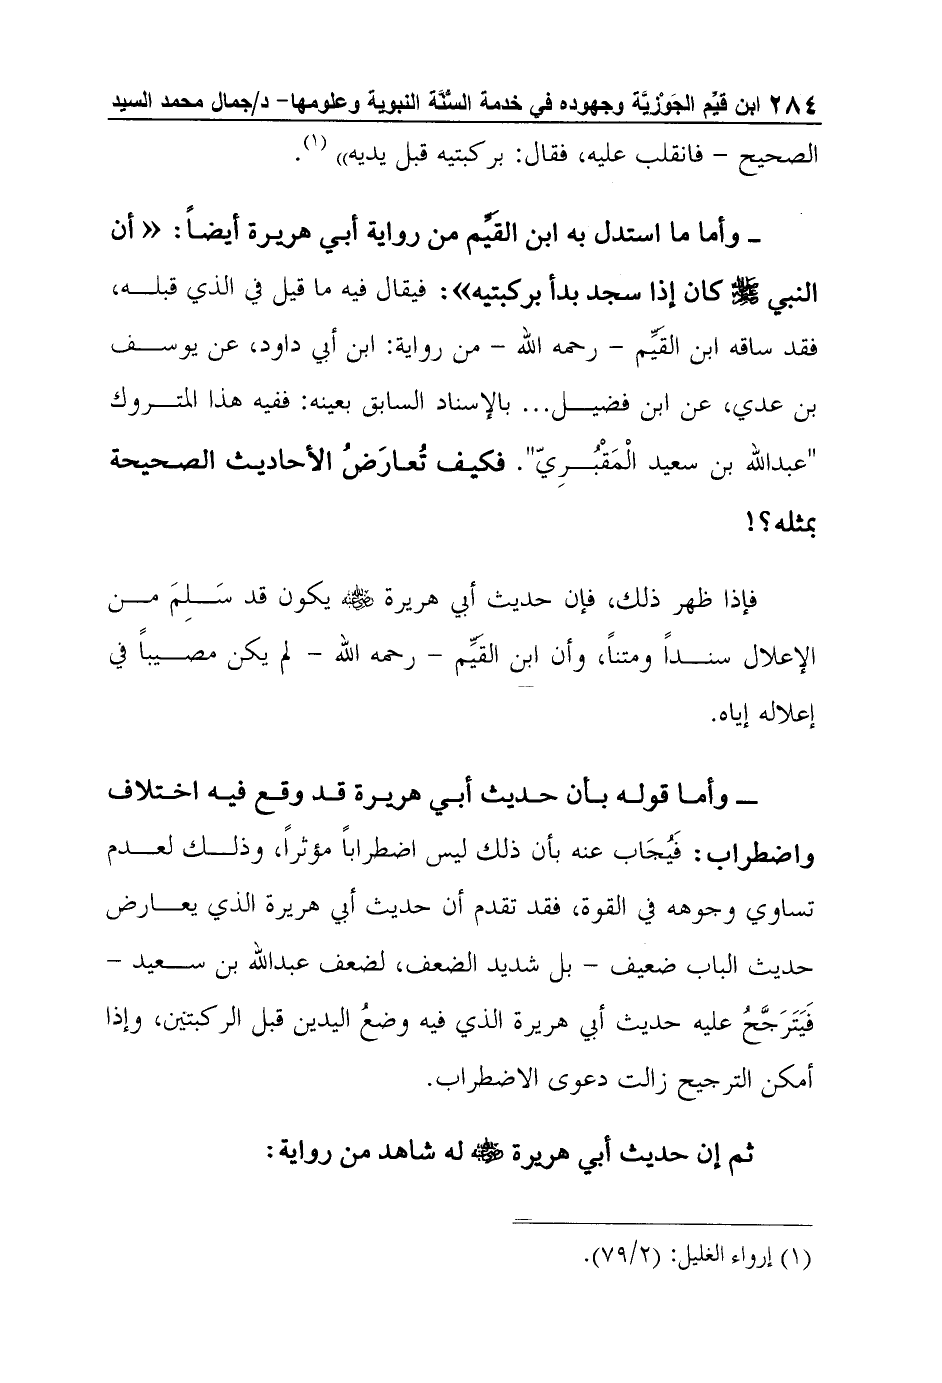 ٢٨٤ ابن قيِّم الجَوْزِيَّة وجهوده في خدمة السنَّة النبوية وعلومها- د/جمال محمد السيد
الصحيح - فانقلب عليه، فقال: بركبتيه قبل يديه» (١).
ـ وأما ما استدل به ابن القيِّم من رواية أبي هريرة أيضاً: « أن
النبي ﷺ كان إذا سجد بدأ بركبتيه»: فيقال فيه ما قيل في الذي قبلـــه،
فقد ساقه ابن القيِّم - رحمه الله - من رواية: ابن أبي داود، عن يوســـف
بن عدي، عن ابن فضيـــل... بالإسناد السابق بعينه: ففيه هذا المتـــروك
"عبدالله بن سعيد الْمَقْبُـــرِيّ". فكيف تُعارَضُ الأحاديث الصحيحة
بمثله؟!
فإذا ظهر ذلك، فإن حديث أبي هريرة ﵁ يكون قد سَـــلِمَ مـــن
الإعلال سنـــداً ومتناً، وأن ابن القيِّم - رحمه الله - لم يكن مصـــيباً في
إعلاله إياه.
ـ وأما قوله بأن حديث أبي هريرة قد وقع فيه اختلاف
واضطراب: فَيُجَاب عنه بأن ذلك ليس اضطراباً مؤثراً، وذلـــك لعـــدم
تساوي وجوهه في القوة، فقد تقدم أن حديث أبي هريرة الذي يعـــارض
حديث الباب ضعيف - بل شديد الضعف، لضعف عبدالله بن ســـعيد -
فَيَتَرَجَّحُ عليه حديث أبي هريرة الذي فيه وضعُ اليدين قبل الركبتين، وإذا
أمكن الترجيح زالت دعوى الاضطراب.
ثم إن حديث أبي هريرة ﵁ له شاهد من رواية:
(١) إرواء الغليل: (٧٩/٢).